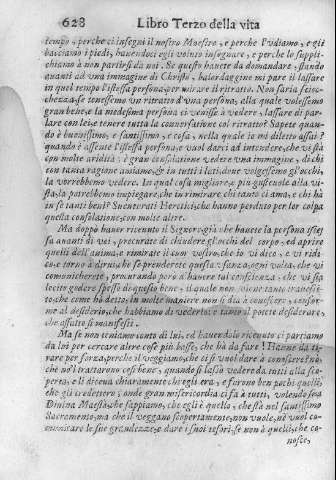 628 Libro Terzo della vita
tempo, perche ci insegni il nostro Maestro, e perche l'udiamo, e gli
bacciamo i piedi, hauendoci egli voluto insegnare, e perche lo suppli-
chiamo à non partirsi da noi. Se questo hauete da domandare, stando
quanti ad vna imagine di Christo, balordaggine mi pare il lassare
in quel tempo l'istessa persona, per mirare il ritratto. Non saria scioc-
chezza, se tenessemo vn ritratto d'vna persona, alla quale volessemo
gran bene, e la medesima persona ci venisse à vedere, lassare di par-
lare con lei, e tenere tutta la conuersatione col ritratto? Sapete quan-
do è buonissimo, e santissimo, e cosa, nella quale io mi diletto assai?
quando è assente l'istessa persona, e vuol darci ad intendere, che vi stà
con molte aridità; è gran consolatione vedere vna imagine, di chi
con tanta ragione amiamo, & in tutti i lati, doue volgessemo gl'occhi,
la vorrebbemo vedere. In qual cosa migliore, e più gusteuole alla vi-
sta, la potremmo impiegare, che in rimirare chi tanto ci ama, e chi hà
in se tutti beni? Suenturati Heretici, che hanno perduto per lor colpa
questa consolatione, con molte altre.
Ma doppò hauer riceuuto il Signore, già che hauete la persona istes-
sa auanti di voi, procurate di chiudere gl'occhi del corpo, ed aprire
quelli dell'anima, e rimirate il cuor vostro, che io vi dico, e vi ridi-
co, e torno à dirui, che se prenderete questa vsanza, ogni volta, che vi
comunicherete, procurando però d'hauere tal conscienza, che vi sia
lecito godere spesso di questo bene, il quale non viene tanto trauesti-
to, che come hò detto, in molte maniere non si dia à conoscere, confor-
me al desiderio, che habbiamo di vederlo: e tanto il potete desiderare,
che affatto si manifesti.
Ma se non teniamo conto di lui, ed hauendolo riceuuto ci partiamo
da lui per cercare altre cose più basse, che hà da fare? Hacne da ti-
rare per forza, perche il veggiamo, che ci si vuol dare à conoscere? nò,
che nol trattarono così bene, quando si lassò vedere da tutti alla sco-
perta, e li diceua chiaramente chi egli era, e furono ben pochi quelli,
che gli credettero; onde gran misericordia ci fa à tutti, volendo sua
Diuina Maestà, che sappiamo, che egli è quello, che stà nel santissimo
Sacramento, ma che il veggano scopertamente, non vuole, nè vuol co-
municare le sue grandezze, e dare i suoi tesori, se non à quelli, che co-
nosce,